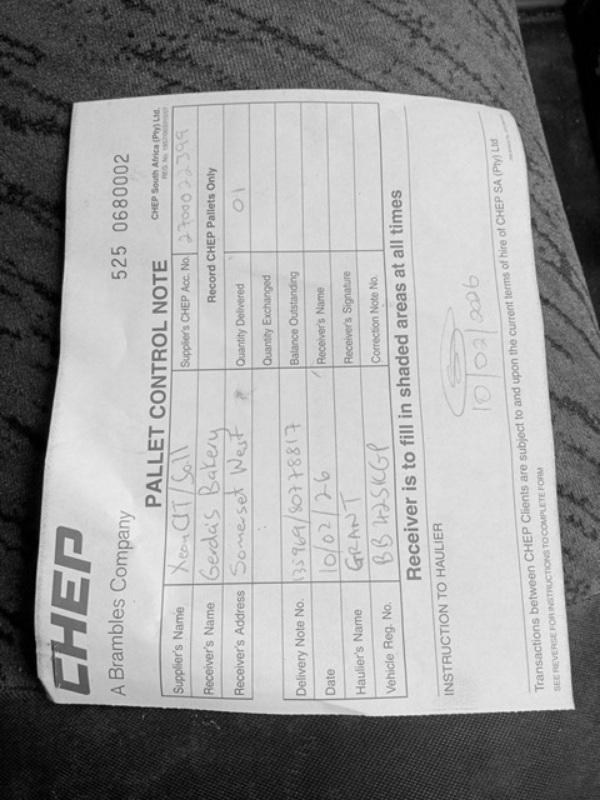 CHEP
A Brambles Company
525 0680002
PALLET CONTROL NOTE
CHEP South Africa (Pty) Ltd.
Supplier's Name Xeon CIT/Sall Supplier's CHEP Acc. No. 2700022399
Receiver's Name Gerda's Bakery Record CHEP Pallets Only
Receiver's Address Somerset West Quantity Delivered 01
Quantity Exchanged
Delivery Note No. 135969/80778817 Balance Outstanding
Date 10/02/26 Receiver's Name
Haulier's Name GRANT Receiver's Signature
Vehicle Reg. No. BB42SKGP Correction Note No.
Receiver is to fill in shaded areas at all times
INSTRUCTION TO HAULIER
10/02/2026
Transactions between CHEP Clients are subject to and upon the current terms of hire of CHEP SA (Pty) Ltd
SEE REVERSE FOR INSTRUCTIONS TO COMPLETE FORM